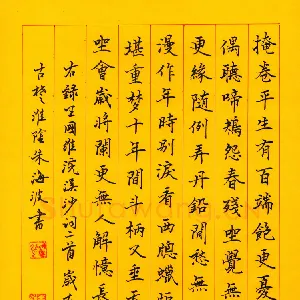 掩卷平生有百端飽更憂
偶聽啼鴂怨春殘坐覺無
更緣隨例弄丹鉛閒愁無
漫作年時別淚看西窗蠟
堪重夢十年間斗柄又垂
坐會歲將闌更無人解憶長
右錄王國維浣溪沙詞二首歲
古楚淮陰朱海波書